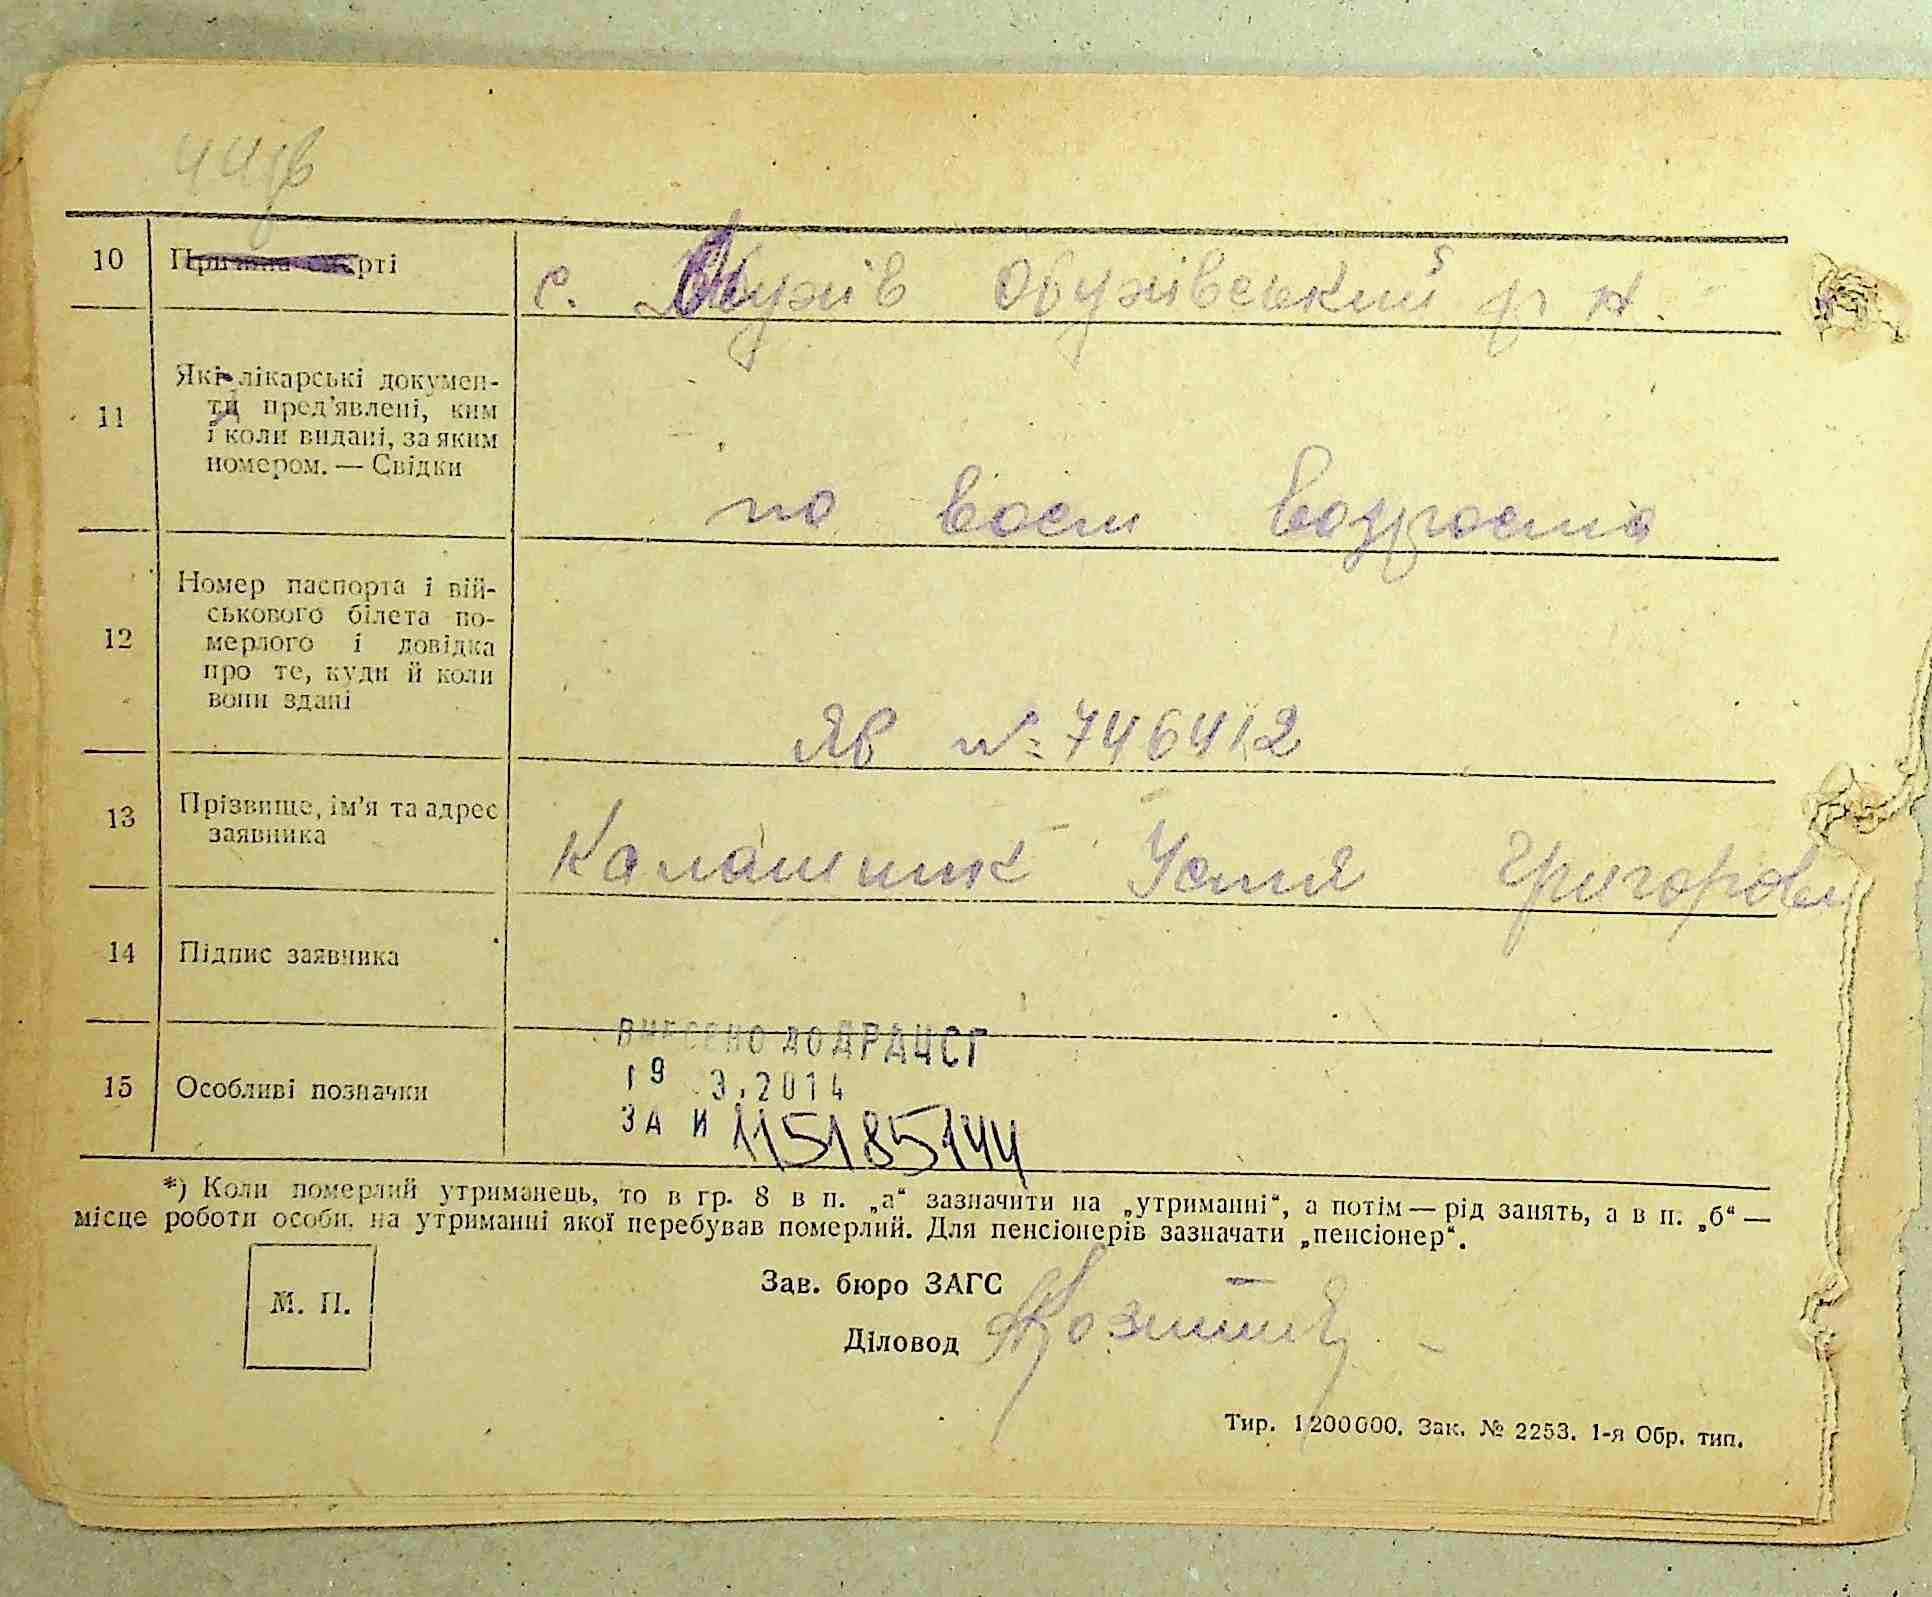 44
10 Причина смерті
с. Обухів Обухівський р н.
11 Які лікарські докумен-
ти пред'явлені, ким
і коли видані, за яким
номером. — Свідки
по воєм возроста
12 Номер паспорта і вій-
ськового білета по-
мерлого і довідка
про те, куди й коли
вони здані
ЯВ №: 746412
13 Прізвище, ім'я та адрес
заявника
Калашник Устя Григоров
14 Підпис заявника
15 Особливі позначки
ВНЕСЕНО ДО ДРАЦСГ
19 3.2014
ЗА И 115185144
*) Коли померлий утриманець, то в гр. 8 в п. „а“ зазначити на „утриманні“, а потім — рід занять, а в п. „б“ —
місце роботи особи, на утриманні якої перебував померлий. Для пенсіонерів зазначати „пенсіонер“.
М. П.
Зав. бюро ЗАГС
Діловод
Тир. 1200000. Зак. № 2253. 1-я Обр. тип.